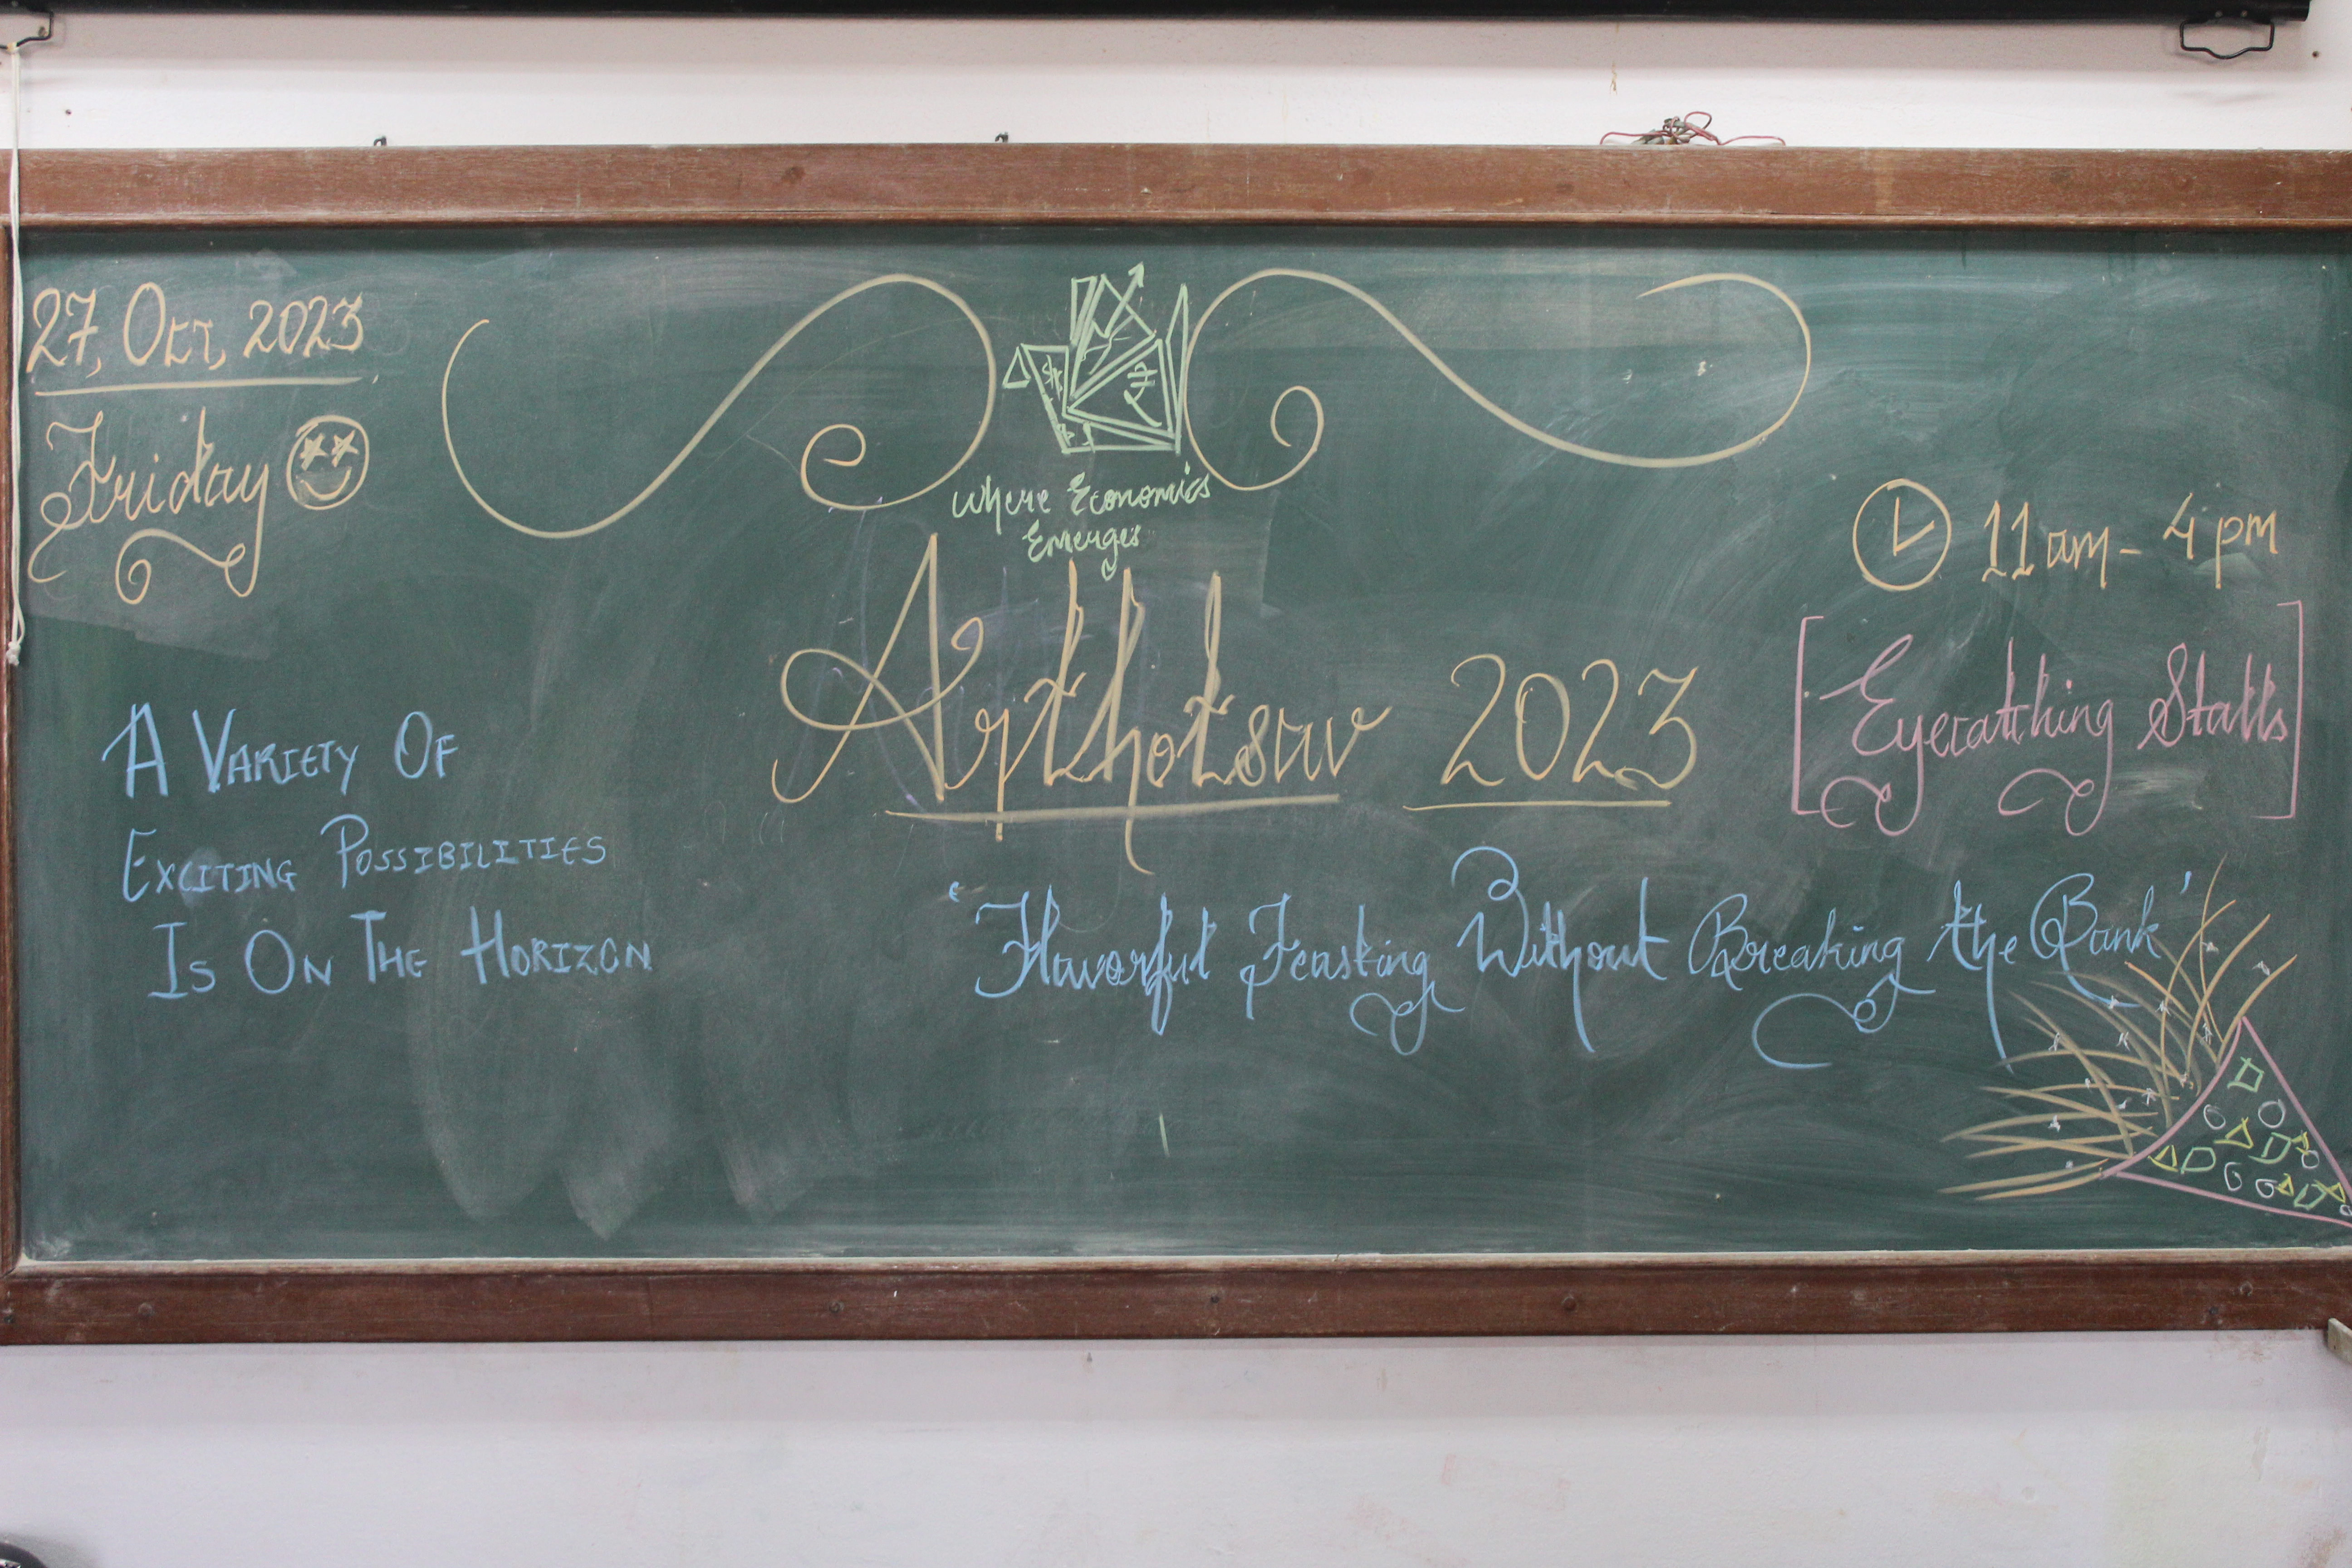 27, Oct, 2023
Friday
Where Economics
Emerges
11 am - 4 pm
Arthotsav 2023
[Eyecatching Stalls]
A VARIETY OF
EXCITING POSSIBILITIES
IS ON THE HORIZON
'Flavorful Feasting Without Breaking the Bank'